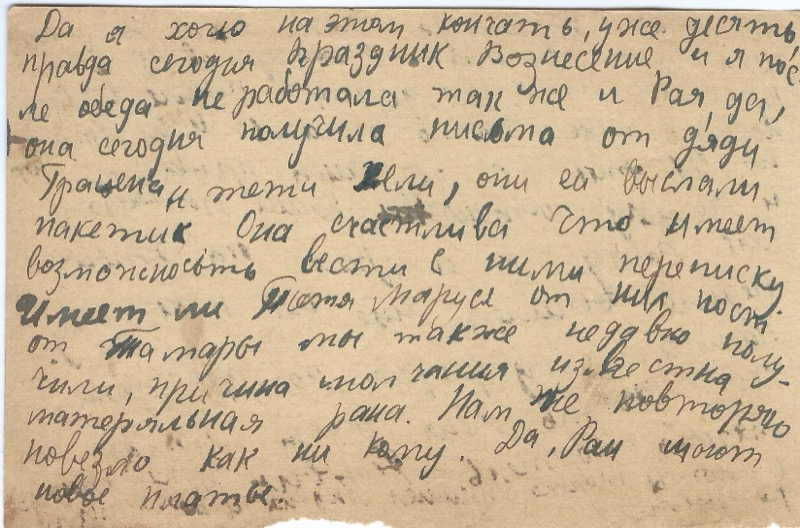 Да я хочу на этом кончать, уже десять,
правда сегодня праздник Вознесение и я пос
ле обеда не работала так же и Рая, да,
она сегодня получила письма от дяди
и тети Нели, они ей выслали
пакетик Она счастлива что имеет
возможность вести с ними переписку
Имеет ли Тетя Маруся от них пост
от Тамары мы также недавно полу-
чили, причина молчания известна
матеряльная рана. Нам же повторяю
повезло как ни кому. Да, Раи шют
новое платье